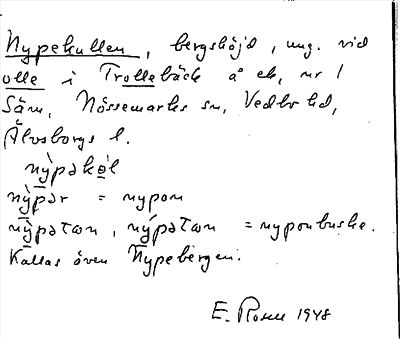 Nypekullen, bergshöjd, ung. vid
olle i Trollebäck å ek, nr 1
Säm, Nössemarks sn, Vedbo hd,
Älvsborgs l.
nỳpəko̲l
nỳpər = nypon
nỳpətɷn, nýpətɷn = nyponbuske.
Kallas även Nypebergen.
E. Rosell 1948